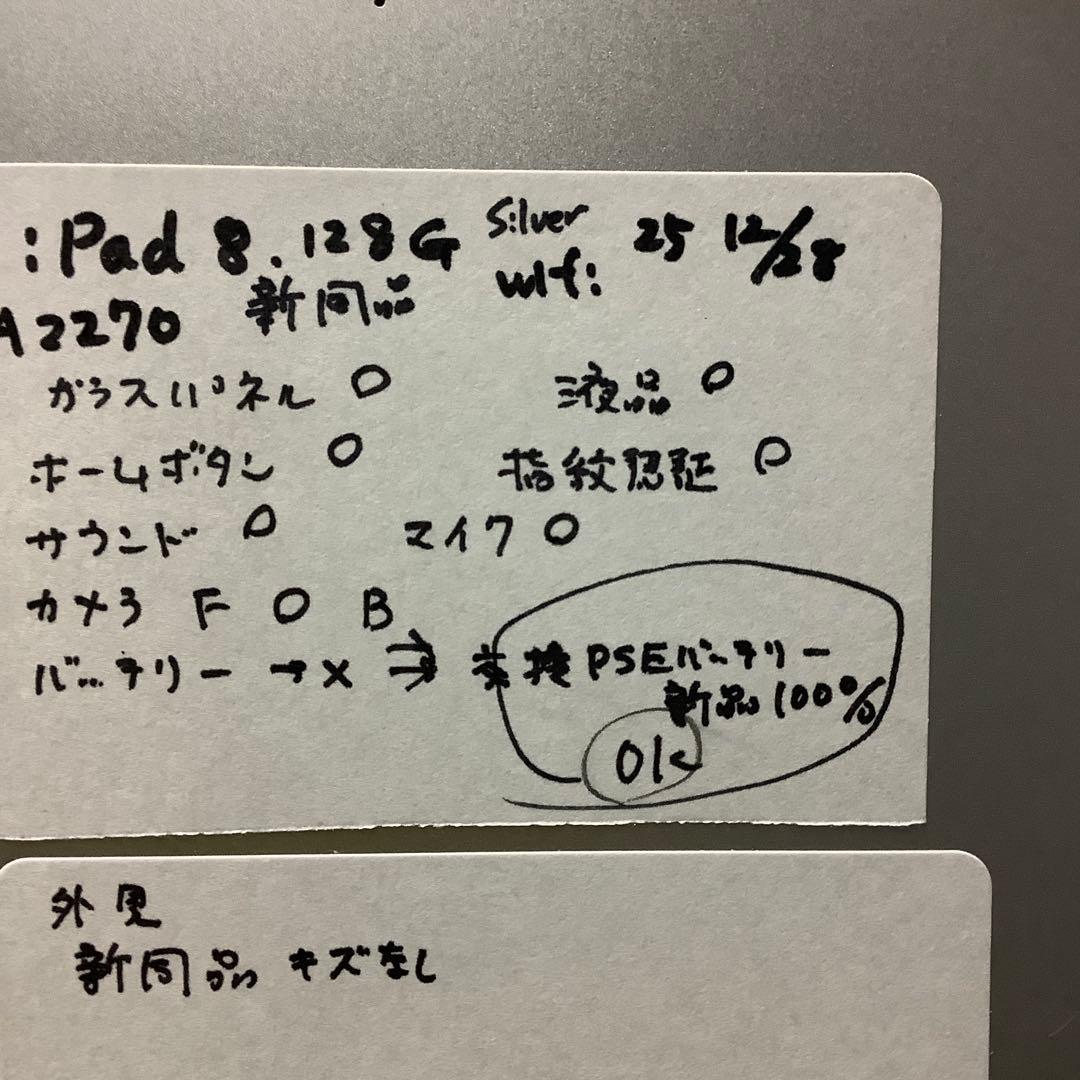 iPad 8. 128G Silver wifi 25 12/28
A2270 新同品
ガラスパネル ○ 液晶 ○
ホームボタン ○ 指紋認証 ○
サウンド ○ マイク ○
カメラ F ○ B
バッテリー → × ⇒ 交換 PSEバッテリー
新品 100%
OK
外見
新同品 キズなし